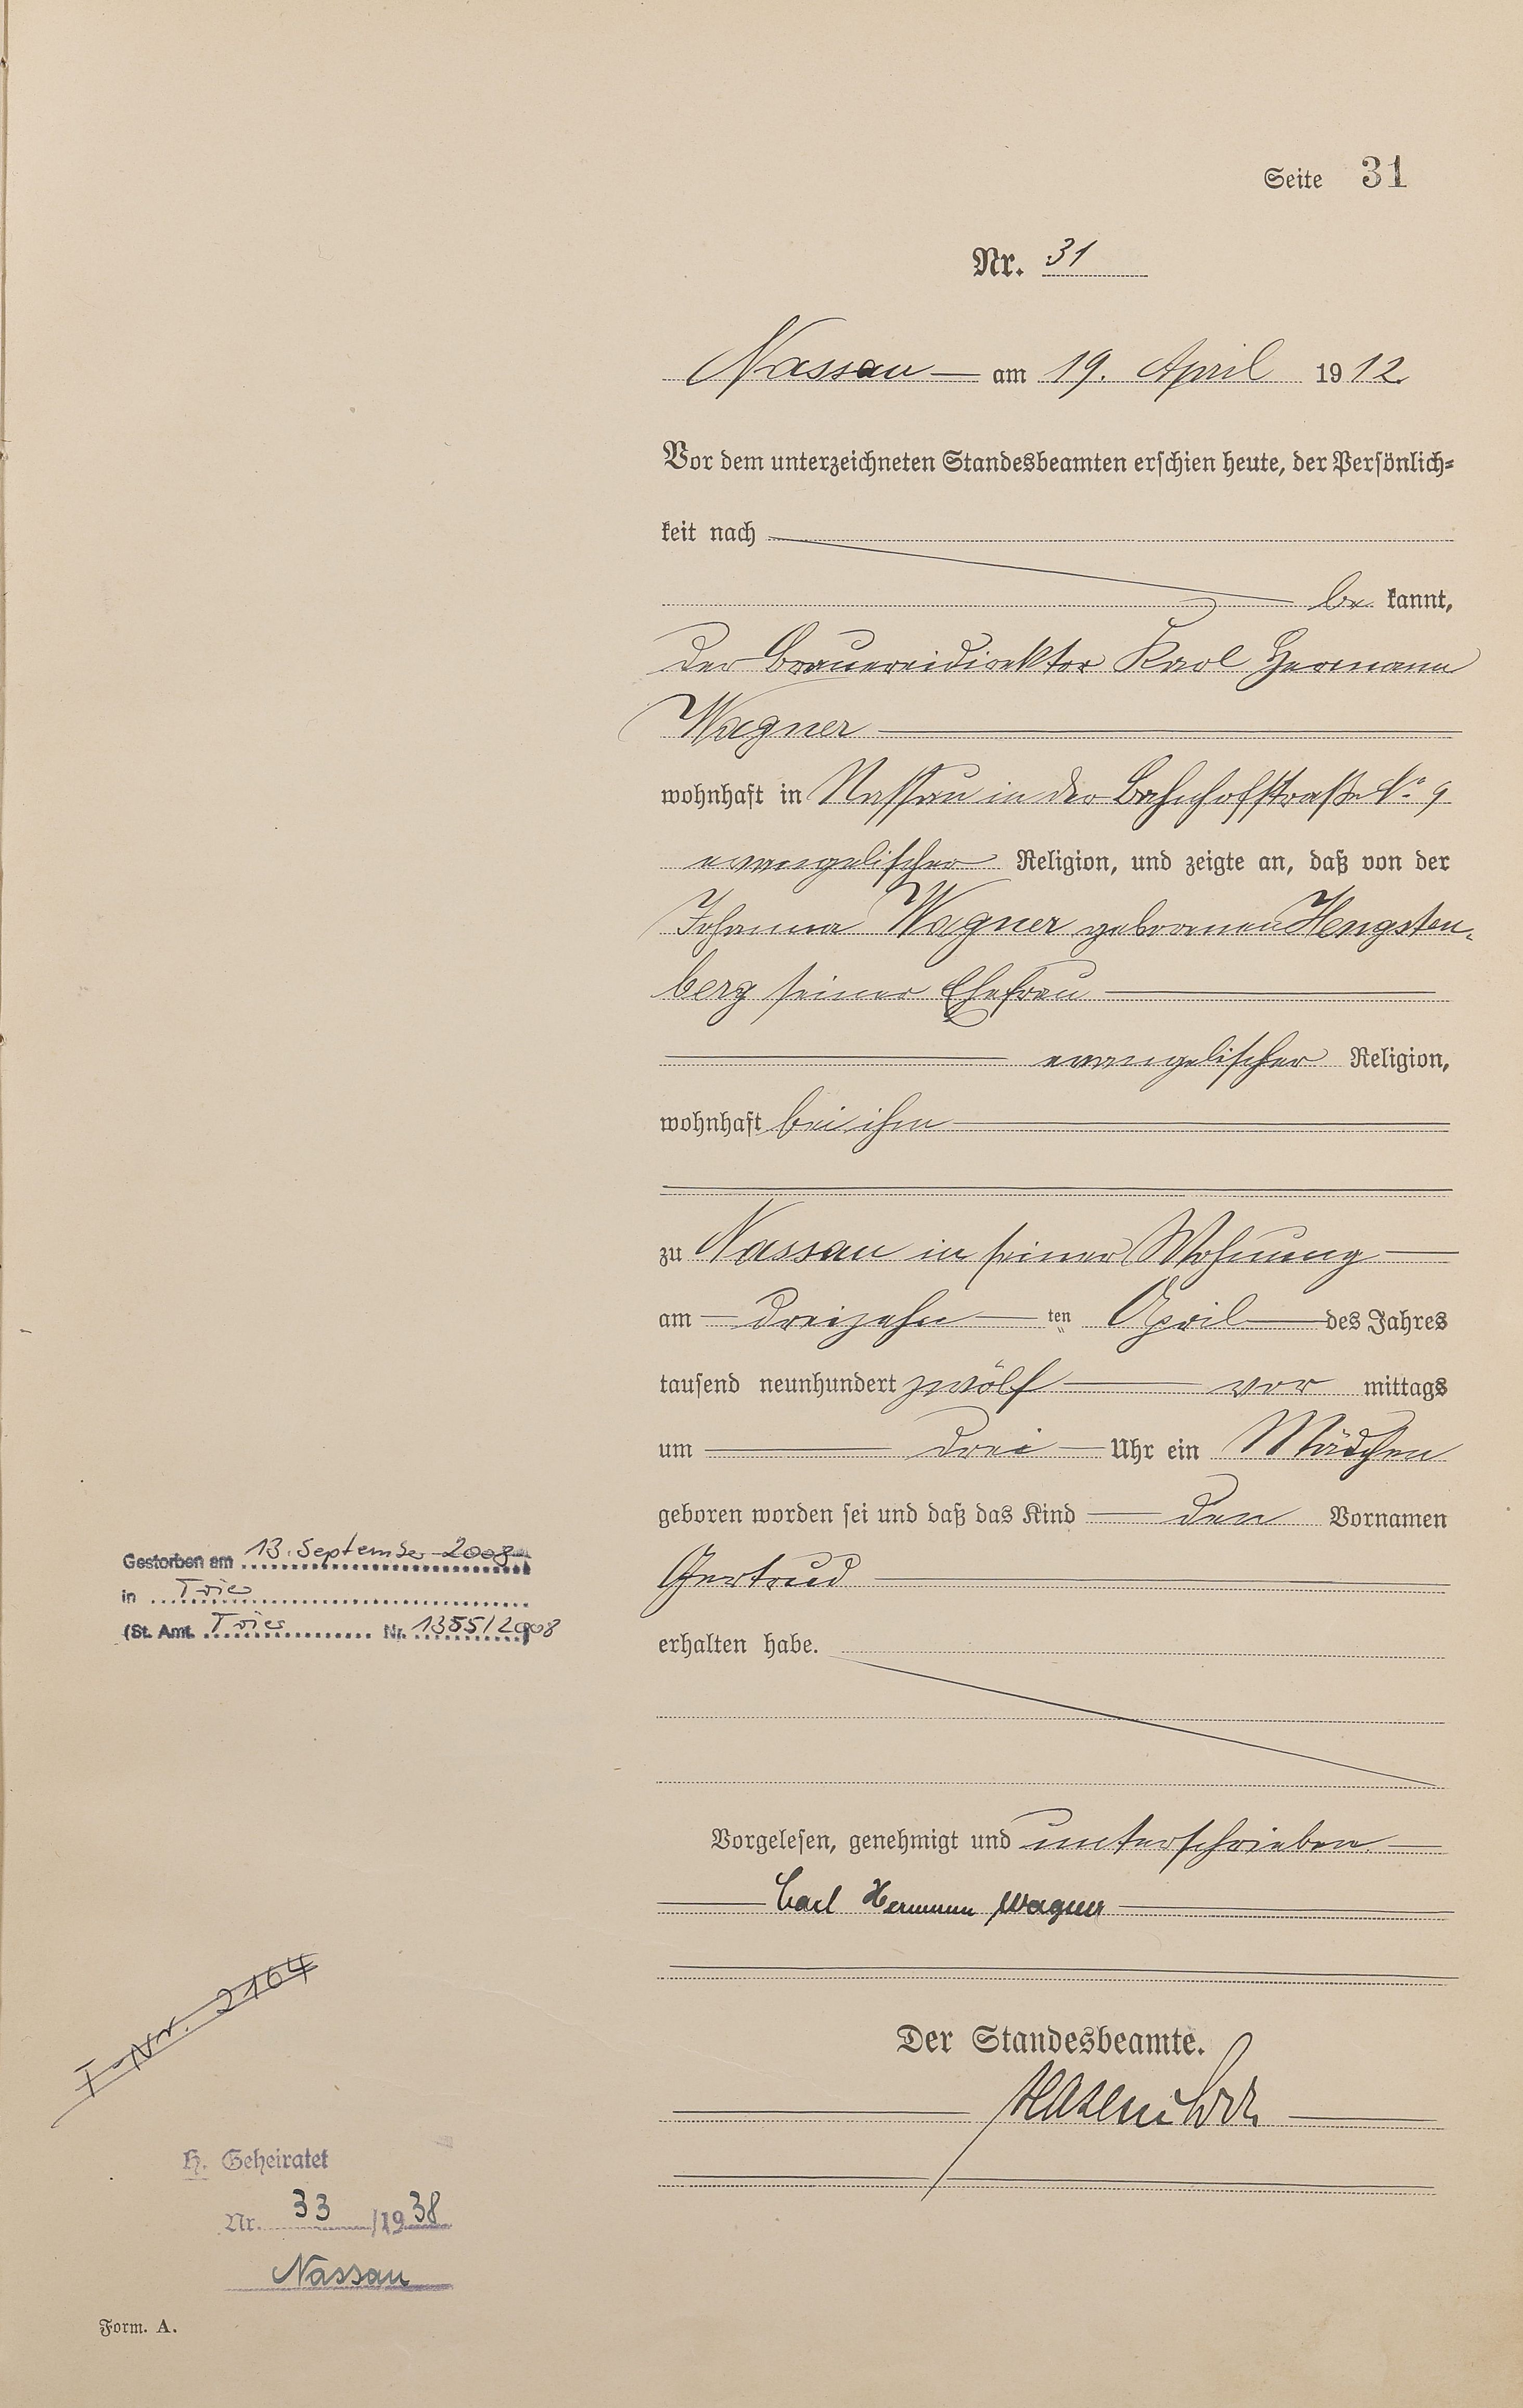 Seite 31
Nr. 31
Nassau am 19. April 1912
Vor dem unterzeichneten Standesbeamten erschien heute, der Persönlich=
keit nach
be kannt,
der Brauereidirektor Karl Hermann
Wagner
wohnhaft in Nassau in der Bahnhofstraße No 9
evangelischer Religion, und zeigte an, daß von der
Johanna Wagner geborenen Hengsten-
berg seiner Ehefrau
evangelischer Religion,
wohnhaft bei ihm
zu Nassau in seiner Wohnung
am dreizehn ten April des Jahres
tausend neunhundert zwölf vor mittags
um drei Uhr ein Mädchen
geboren worden sei und daß das Kind den Vornamen
Gertrud
erhalten habe.
Vorgelesen, genehmigt und unterschrieben.
Carl Hermann Wagner
Der Standesbeamte.
Gestorben am 13. September 2008
in Trier
(St. Amt. Trier Nr. 1355/2008)
I-Nr. 2164
H. Geheiratet
Nr. 33 /1938
Nassau
Form. A.